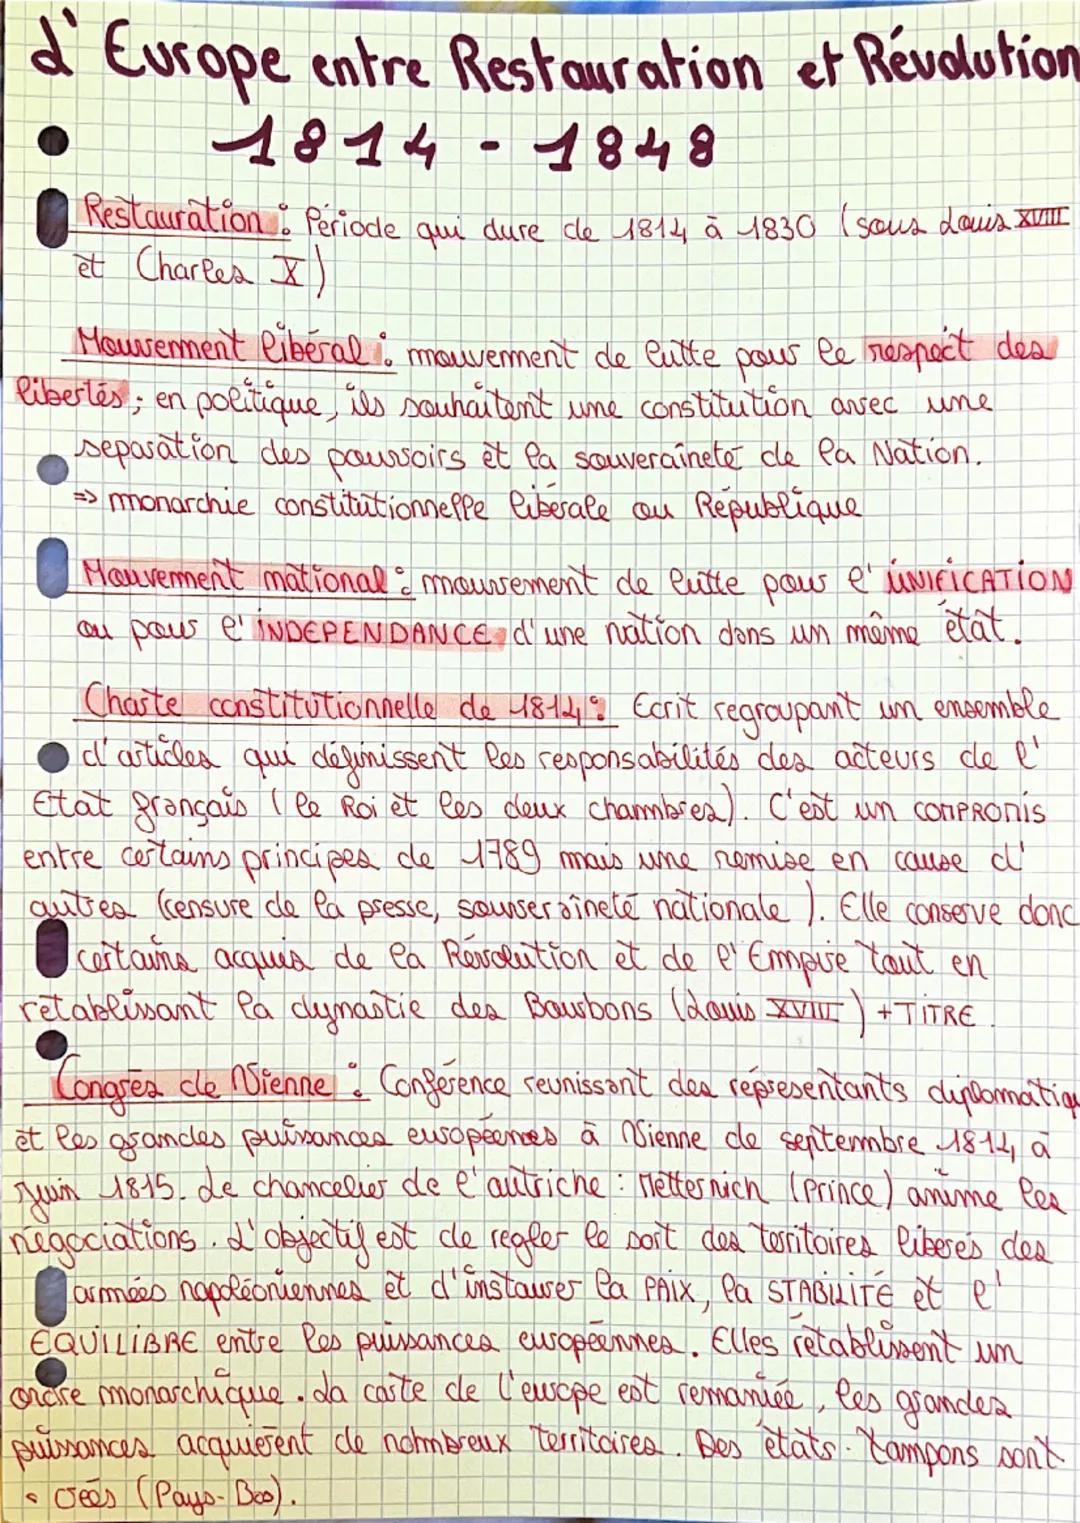 L'Europe entre Restauration et Révolution
1814 - 1848
Restauration : Période qui dure de 1814 à 1830 (sous Louis XVIII
et Charles X)
Mouvement libéral : mouvement de lutte pour le respect des
libertés ; en politique, ils souhaitent une constitution avec une
separation des pouvoirs et la souveraineté de la Nation.
=> monarchie constitutionnelle libérale ou République
Mouvement national : mouvement de lutte pour l'UNIFICATION
ou pour l'INDEPENDANCE d'une nation dans un même état.
Charte constitutionnelle de 1814 : Ecrit regroupant un ensemble
d'articles qui définissent les responsabilités des acteurs de l'
Etat français (le Roi et les deux chambres). C'est un COMPROMIS
entre certains principes de 1789 mais une remise en cause d'
autres (censure de la presse, souveraineté nationale). Elle conserve donc
certains acquis de la Révolution et de l'Empire tout en
rétablissant la dynastie des Bourbons (Louis XVIII) + TITRE.
Congrès de Vienne : Conférence reunissant des réprésentants diplomatiqu
et les grandes puissances européennes à Vienne de septembre 1814 à
Juin 1815. Le chancelier de l'autriche : Metternich (Prince) anime les
négociations. L'objectif est de regler le sort des territoires liberés des
armées napoléoniennes et d'instaurer la PAIX, la STABILITÉ et l'
EQUILIBRE entre les puissances européennes. Elles rétablissent un
ordre monarchique. La carte de l'europe est remaniée, les grandes
puissances acquièrent de nombreux territoires. Des états-tampons sont
créés (Pays-Bas).